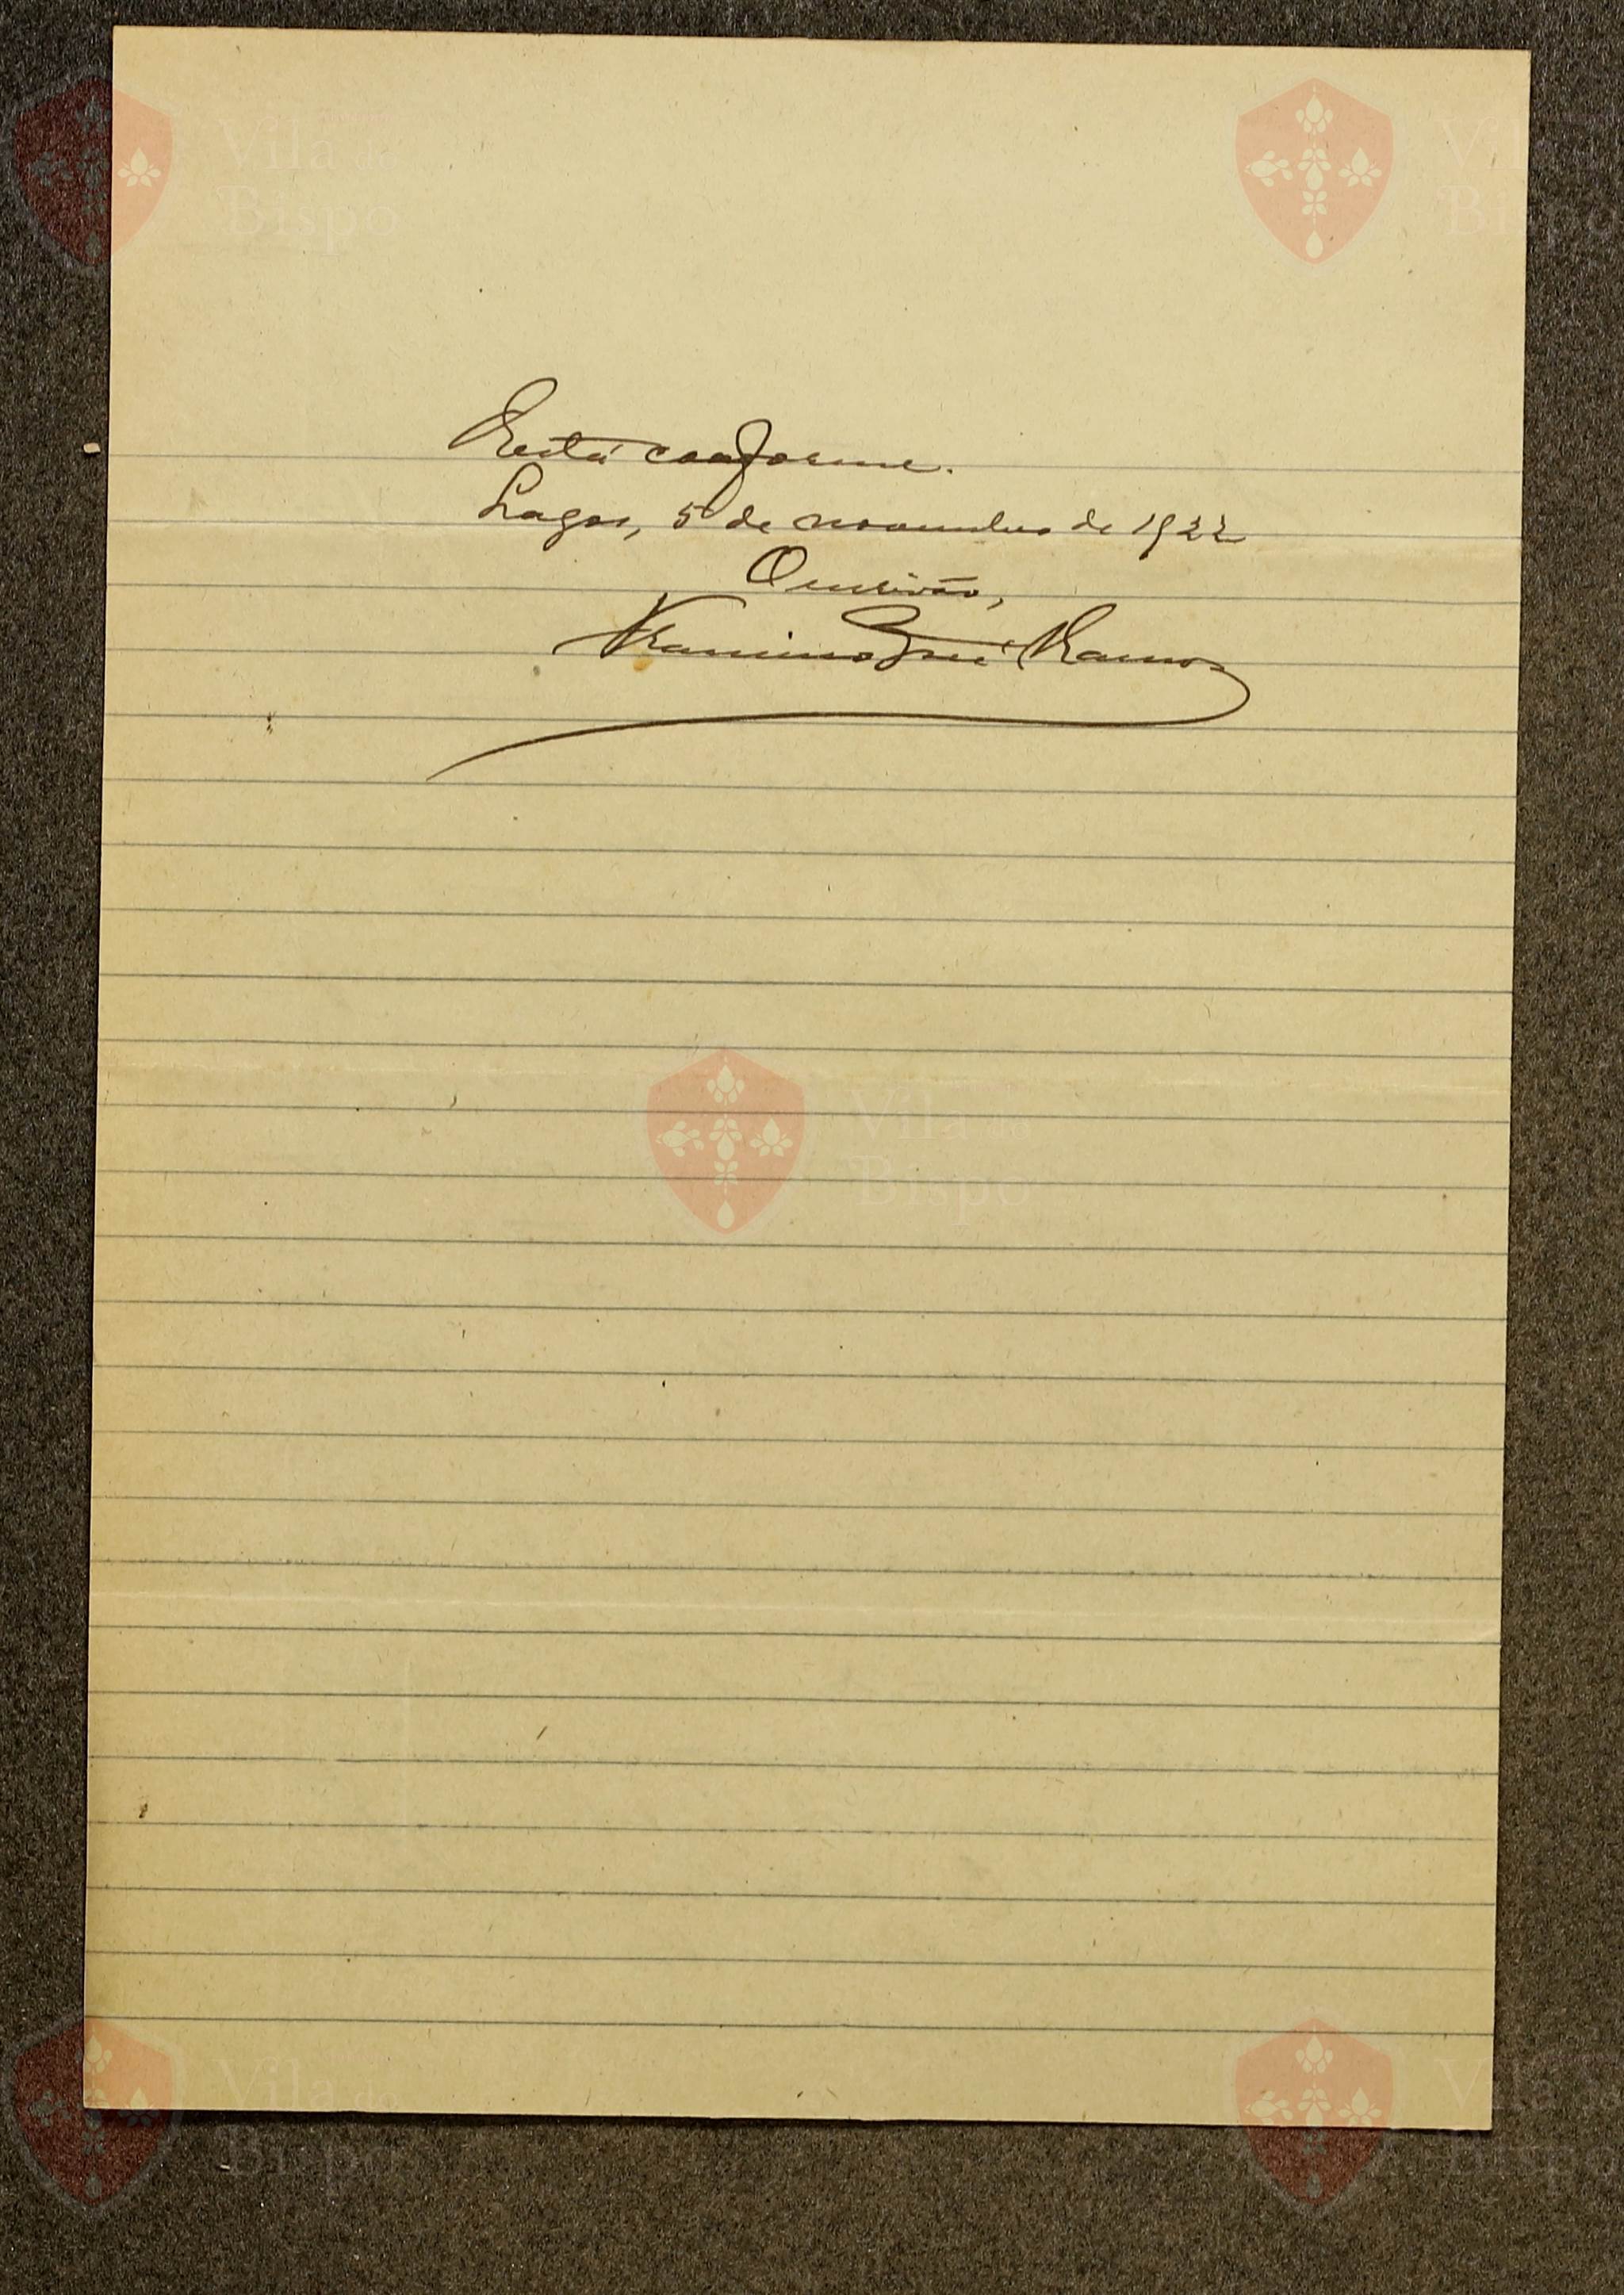 Está conforme.
Lagos, 5 de novembro de 1922
O escrivão,
Francisco José Ramos
Vila do
Bispo
Vila do
Bispo
Vila do
Bispo